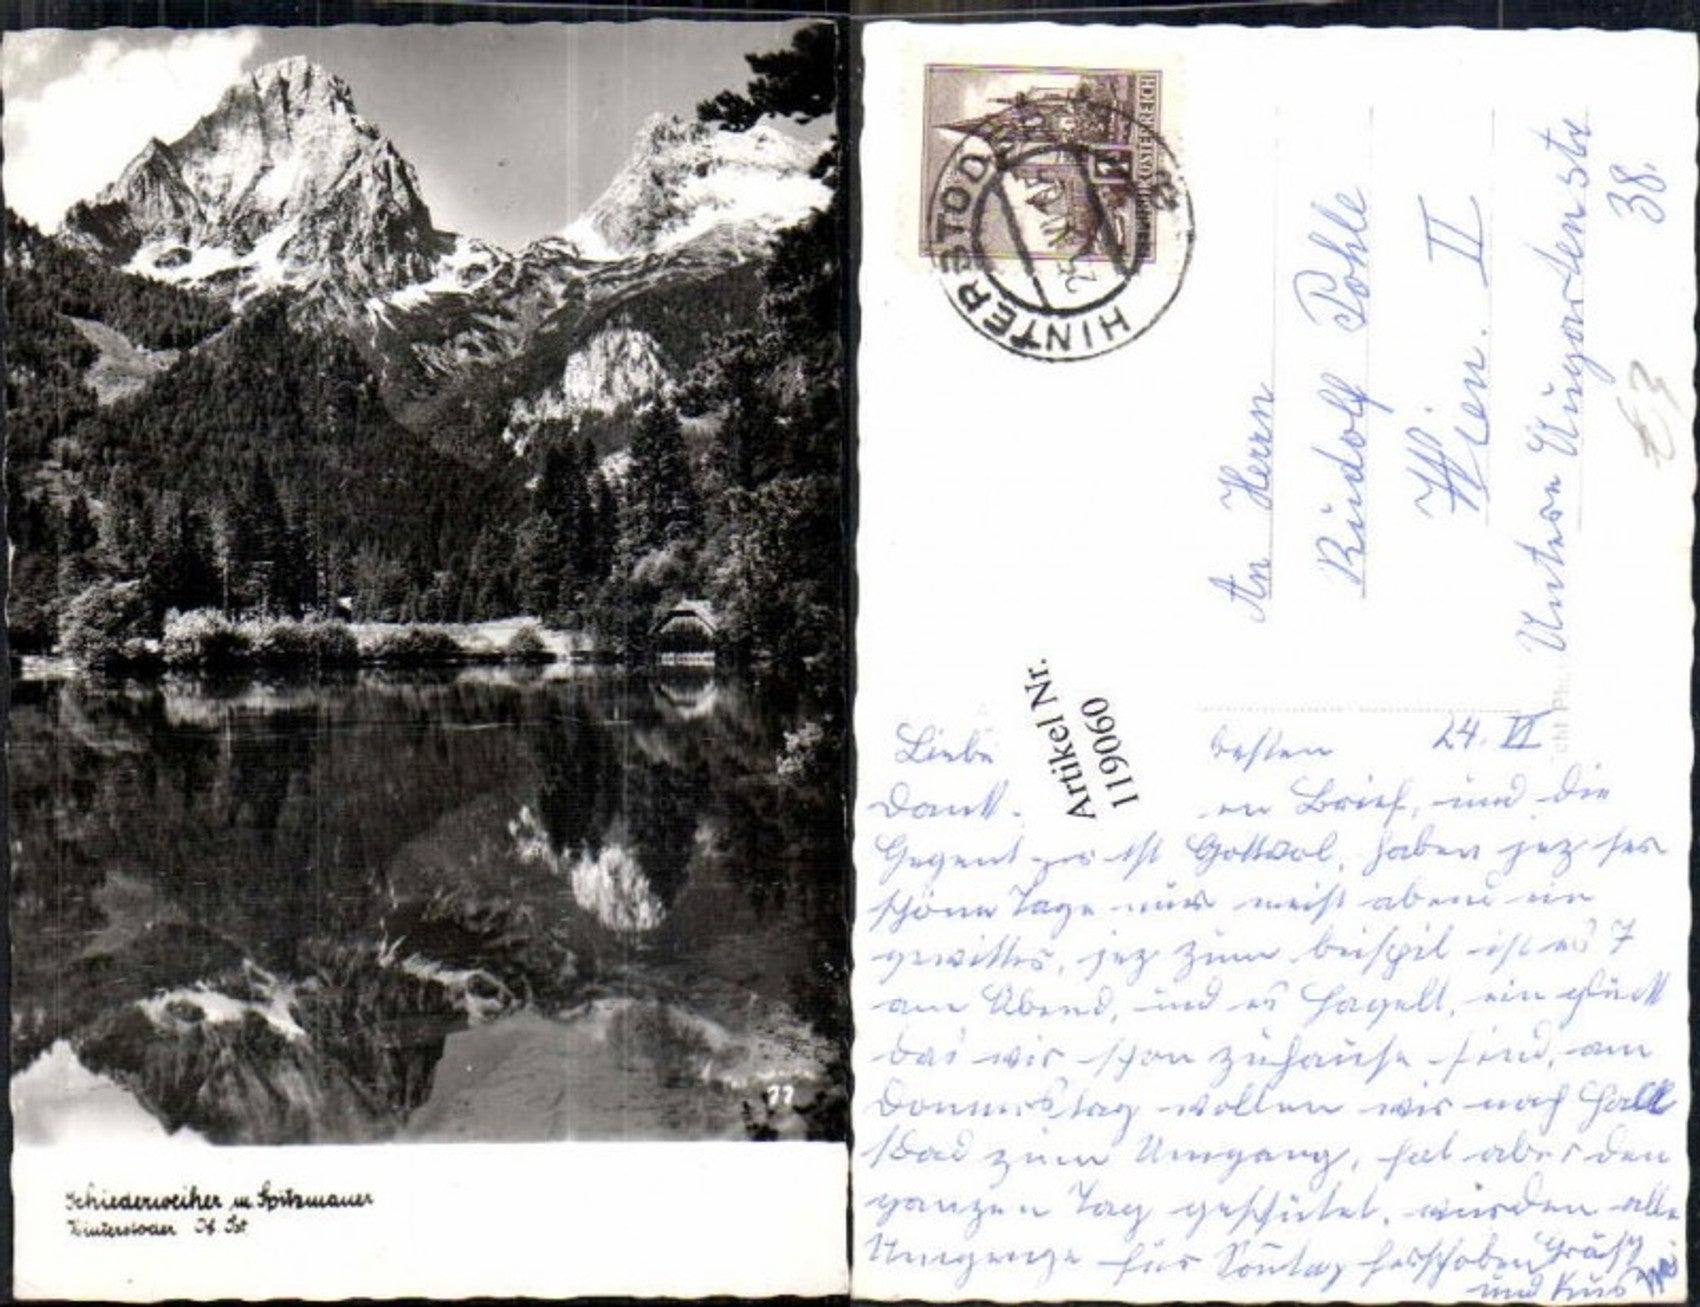 77
Schiederweiher m. Spitzmauer
Hinterstoder O. Öst
REPUBLIK ÖSTERREICH
HINTERSTODER
25.
An Herrn
Rudolf Pohle
Wien. II
Untere Augartenstr
38.
€3
Artikel Nr.
119060
24. VI
Liebe besten
Dank. en Brief, und die
Gegent ist Gottvol, haben jez ser
schöne Tage nur meist abend ein
gewitter, jez zum beispil ist es 7
am Abend, und es hagelt, ein glück
das wir schon zuhause sind, am
Donnerstag wollen wir nach Hall
stad zum Umgang, hat aber den
ganzen Tag geschütet, wurden alle
Umgänge für Sontag ferschoben
und Kus